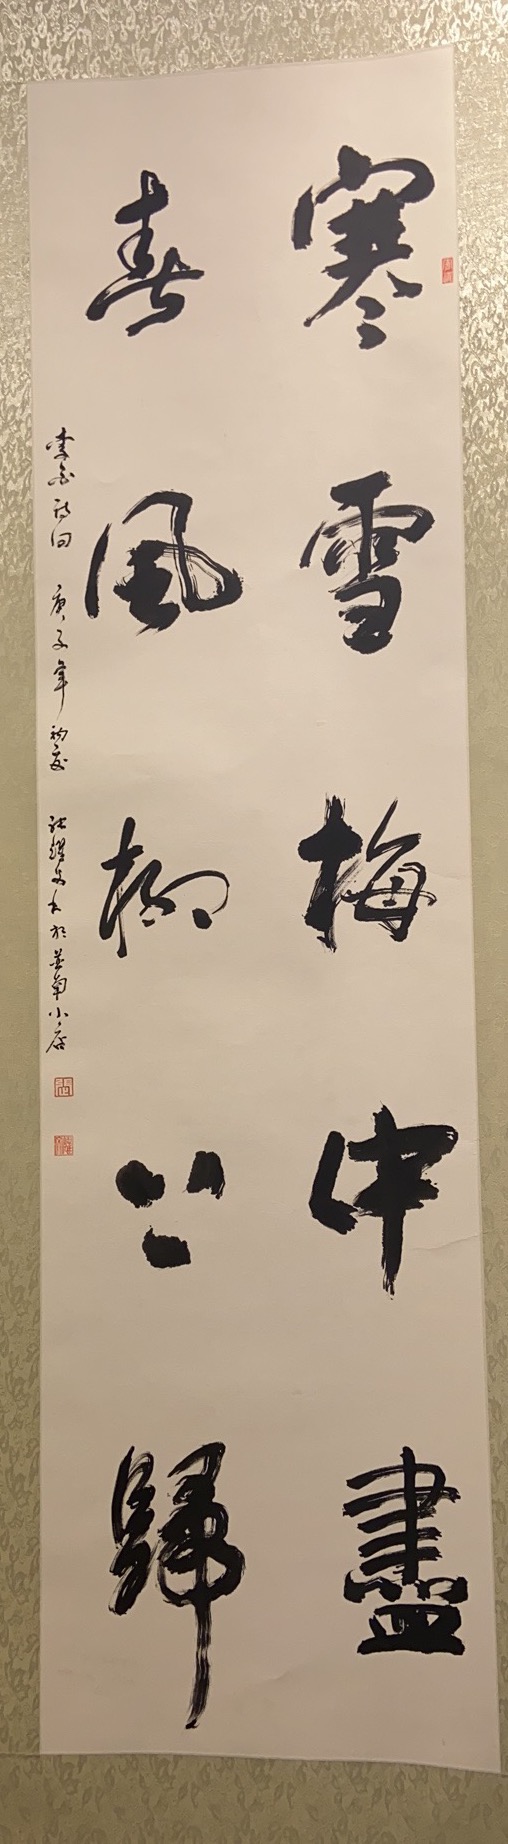 寒雪梅中盡
春風柳上歸
李白詩句 庚子年初夏 張耀文書於 小店